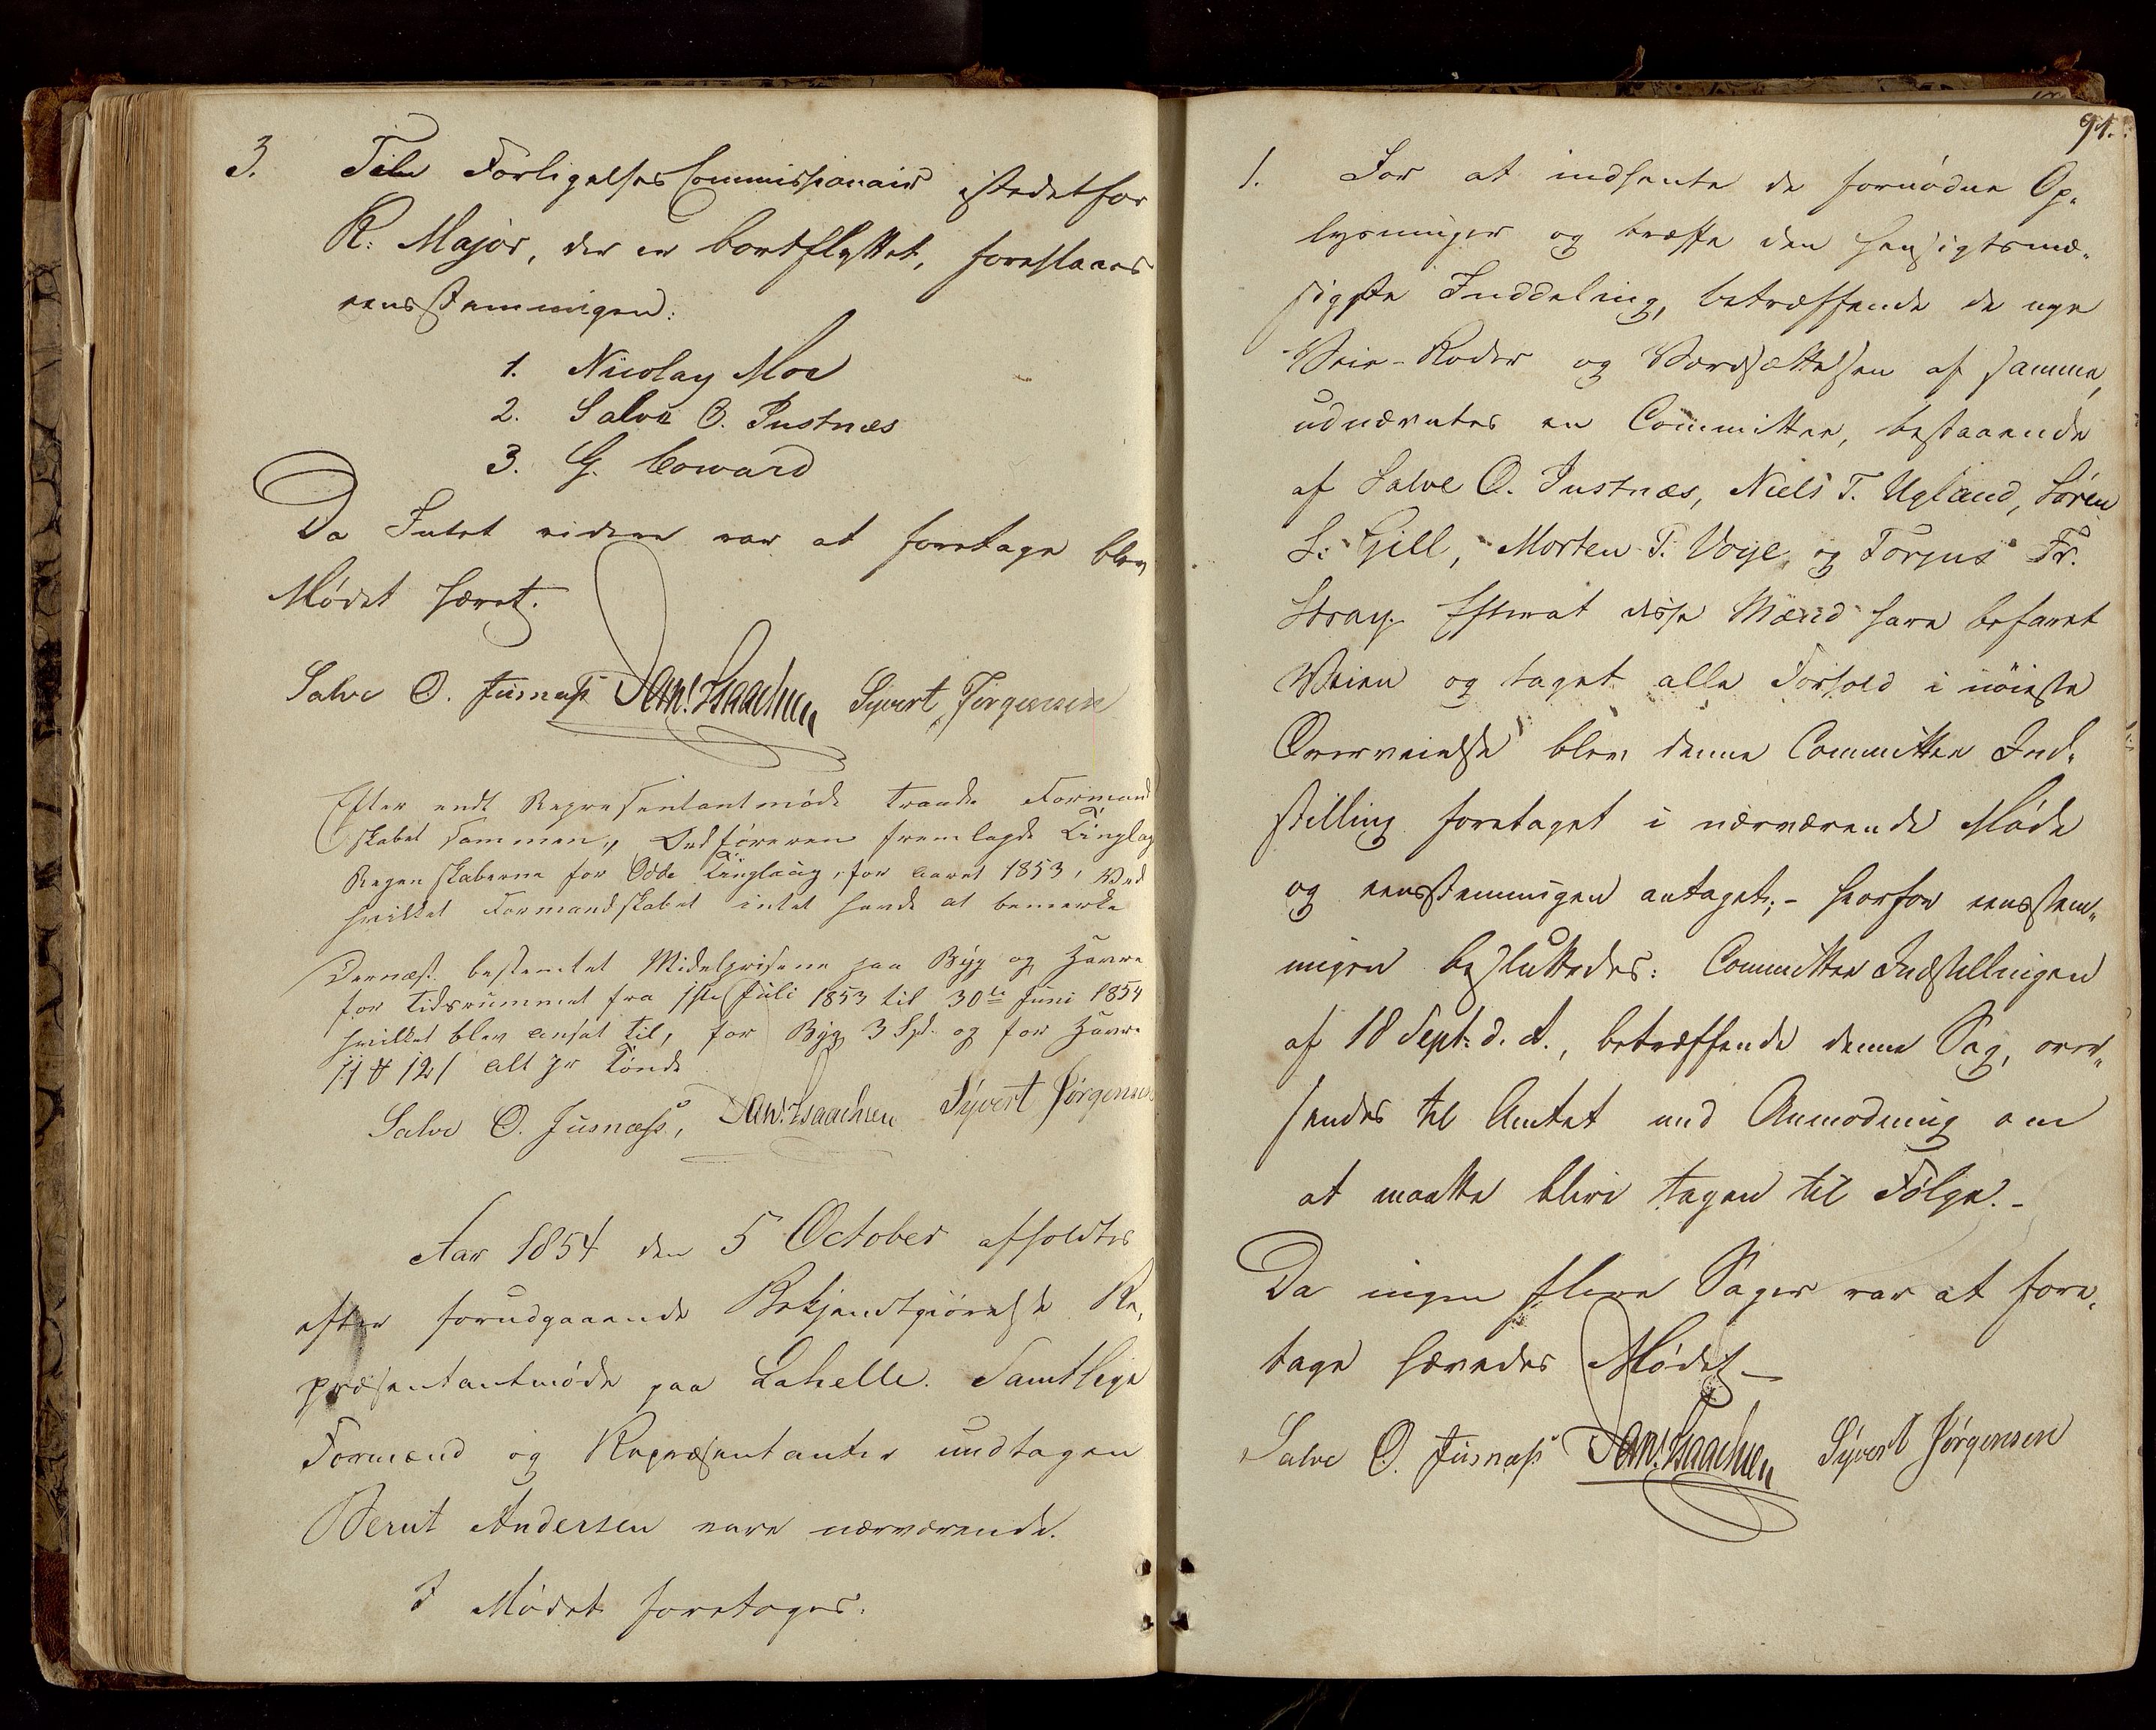 3. Som Forligelses Commissionair istedetfor
R: Major, der er bortflyttet, foreslaaes
eensstemmigen:
1. Nicolay Moe
2. Salve O. Justnæs
3. G. Coward
Da Intet videre var at foretage blev
Mødet hævet.
Salve O. Jusnæss Dan. Isaachsen Syvert Jørgensen
Efter endt Representantmøde traade Formand
skabet sammen, Ordføreren fremlagde Tinglag
Regenskaberne for Odde Tinglaug, for Aaret 1853, Ved
hvilket Formandskabet intet havde at bemerke
Dernæst bestemtet Midelprisene paa Byg og Havre
for Tidsrummet fra 1ste Juli 1853 til 30te Juni 1854
hvilket blev ansat til, for Byg 3 Spd. og for Havre
alt pr Tønde
Salve O. Jusnæss, Dan. Isaachsen Syvert Jørgensen
Aar 1854 den 5 October afholdtes
efter forudgaaende Bekjendtgiørelse Re,
præsentantmøde paa Lahelle. Samtlige
Formænd og Repræsentanter undtagen
Bernt Andersen vare nærværende.
I Mødet foretoges:
91.
1. For at indhente de fornødne Op,
lysninger og træffe den hensigtsmæ,
sigste Inddeling, betræffende de nye
Veie-Roder og Værdsættelsen af samme,
udnævntes en Committee, bestaaende
af Salve O. Justnæs, Niels T. Ugland, Søren
S. Gill, Morten T. Voije og Torjus Fr.
Straÿ. Efterat disse Mænd have befaret
Veien og taget alle Forhold i nøieste
Overveielse blev denne Committee Ind,
stilling foretaget i nærværende Møde
og eensstemmigen antaget; - hvorfor eensstem,
migen besluttedes: Committee Indstillingen
af 18 Sept: d. A., betræffende denne Sag, over,
sendes til Amtet med Anmodning om
at maatte blive tagen til Følge. -
Da ingen flere Sager var at fore,
tage hævedes Mødet. -
Salve O. Jusnæss Dan. Isaachsen Syvert Jørgensen